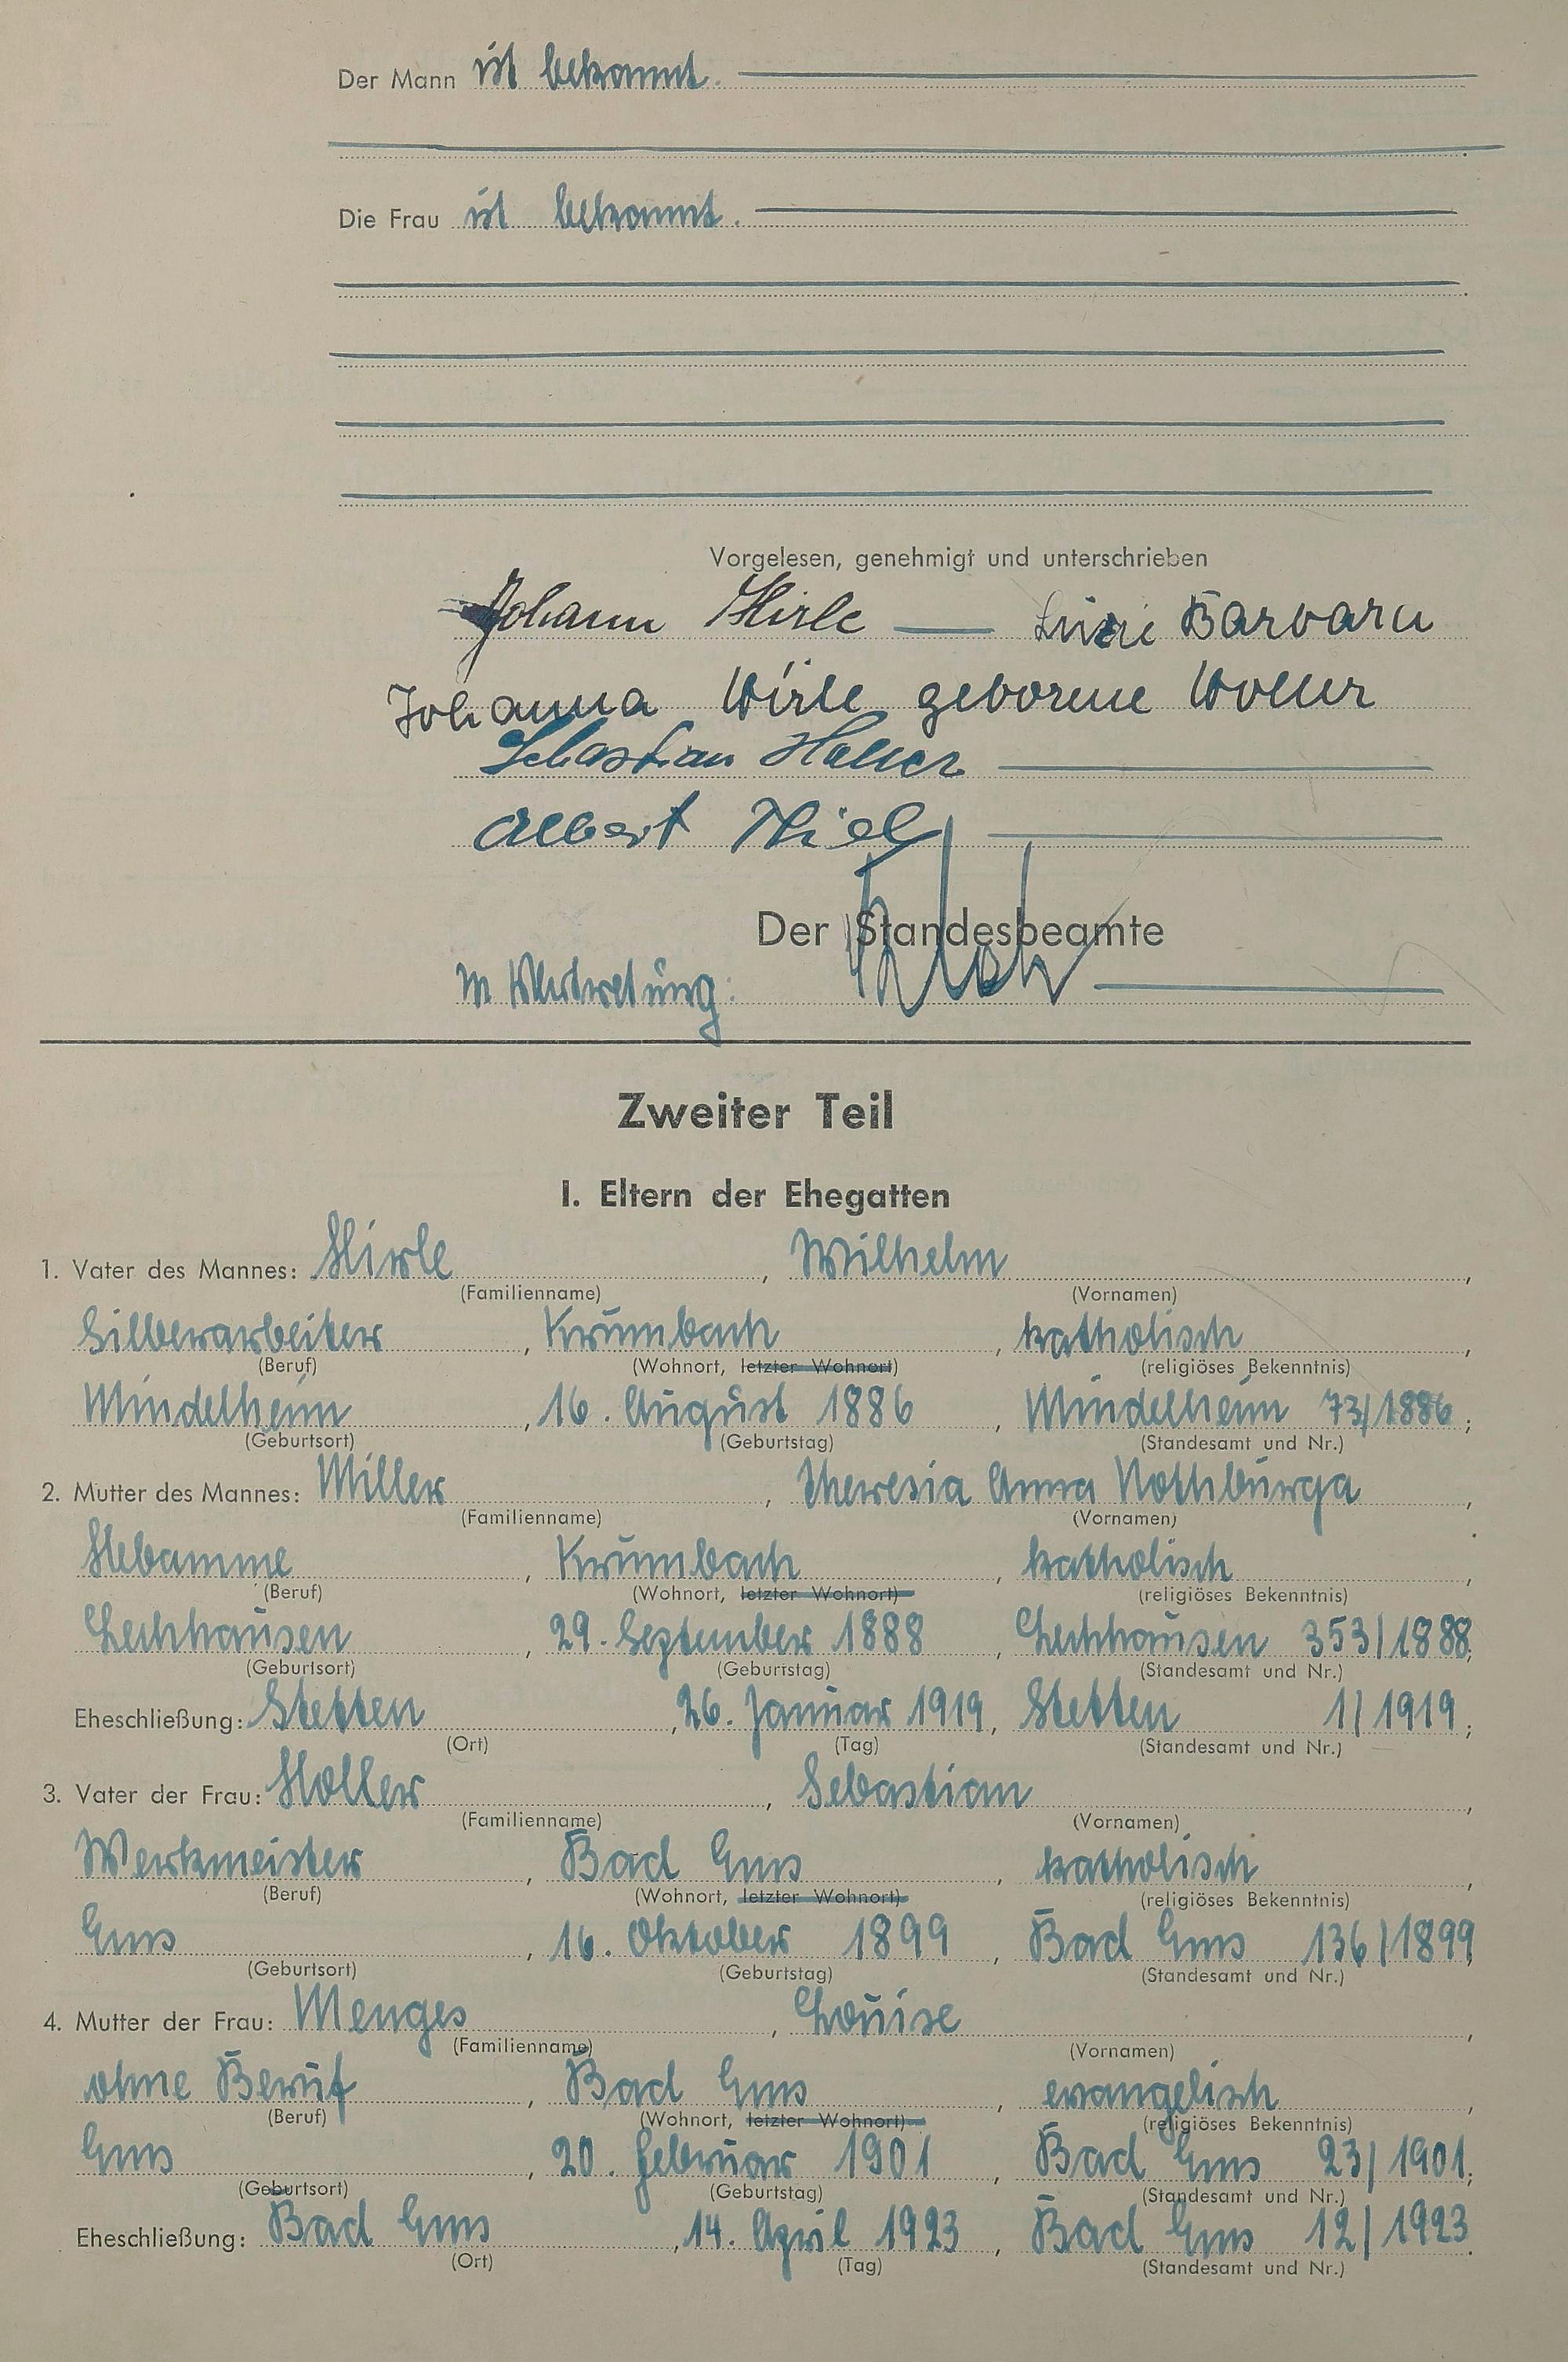 Der Mann ist bekannt.
Die Frau ist bekannt.
Vorgelesen, genehmigt und unterschrieben
Johann Hirle — Luise Barbara
Johanna Hirle geborene Holler
Sebastian Holler
Albert Thiel
Der Standesbeamte
In Vertretung:
Zweiter Teil
I. Eltern der Ehegatten
1. Vater des Mannes: Hirle, Wilhelm,
(Familienname) (Vornamen)
Silberarbeiter, Krumbach, katholisch,
(Beruf) (Wohnort, letzter Wohnort) (religiöses Bekenntnis)
Mindelheim, 16. August 1886, Mindelheim 73/1886;
(Geburtsort) (Geburtstag) (Standesamt und Nr.)
2. Mutter des Mannes: Miller, Theresia Anna Nothburga,
(Familienname) (Vornamen)
Hebamme, Krumbach, katholisch,
(Beruf) (Wohnort, letzter Wohnort) (religiöses Bekenntnis)
Lechhausen, 29. September 1888, Lechhausen 353/1888;
(Geburtsort) (Geburtstag) (Standesamt und Nr.)
Eheschließung: Stetten, 26. Januar 1919, Stetten 1/1919;
(Ort) (Tag) (Standesamt und Nr.)
3. Vater der Frau: Holler, Sebastian,
(Familienname) (Vornamen)
Werkmeister, Bad Ems, katholisch,
(Beruf) (Wohnort, letzter Wohnort) (religiöses Bekenntnis)
Ems, 16. Oktober 1899, Bad Ems 136/1899;
(Geburtsort) (Geburtstag) (Standesamt und Nr.)
4. Mutter der Frau: Menges, Louise,
(Familienname) (Vornamen)
ohne Beruf, Bad Ems, evangelisch,
(Beruf) (Wohnort, letzter Wohnort) (religiöses Bekenntnis)
Ems, 20. Februar 1901, Bad Ems 23/1901;
(Geburtsort) (Geburtstag) (Standesamt und Nr.)
Eheschließung: Bad Ems, 14. April 1923, Bad Ems 12/1923.
(Ort) (Tag) (Standesamt und Nr.)